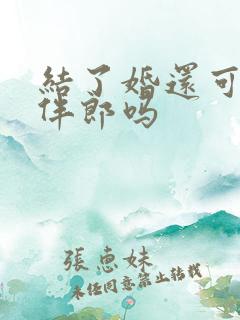 結了婚還可
伴郎吗
張惠妹
未经同意禁止转载